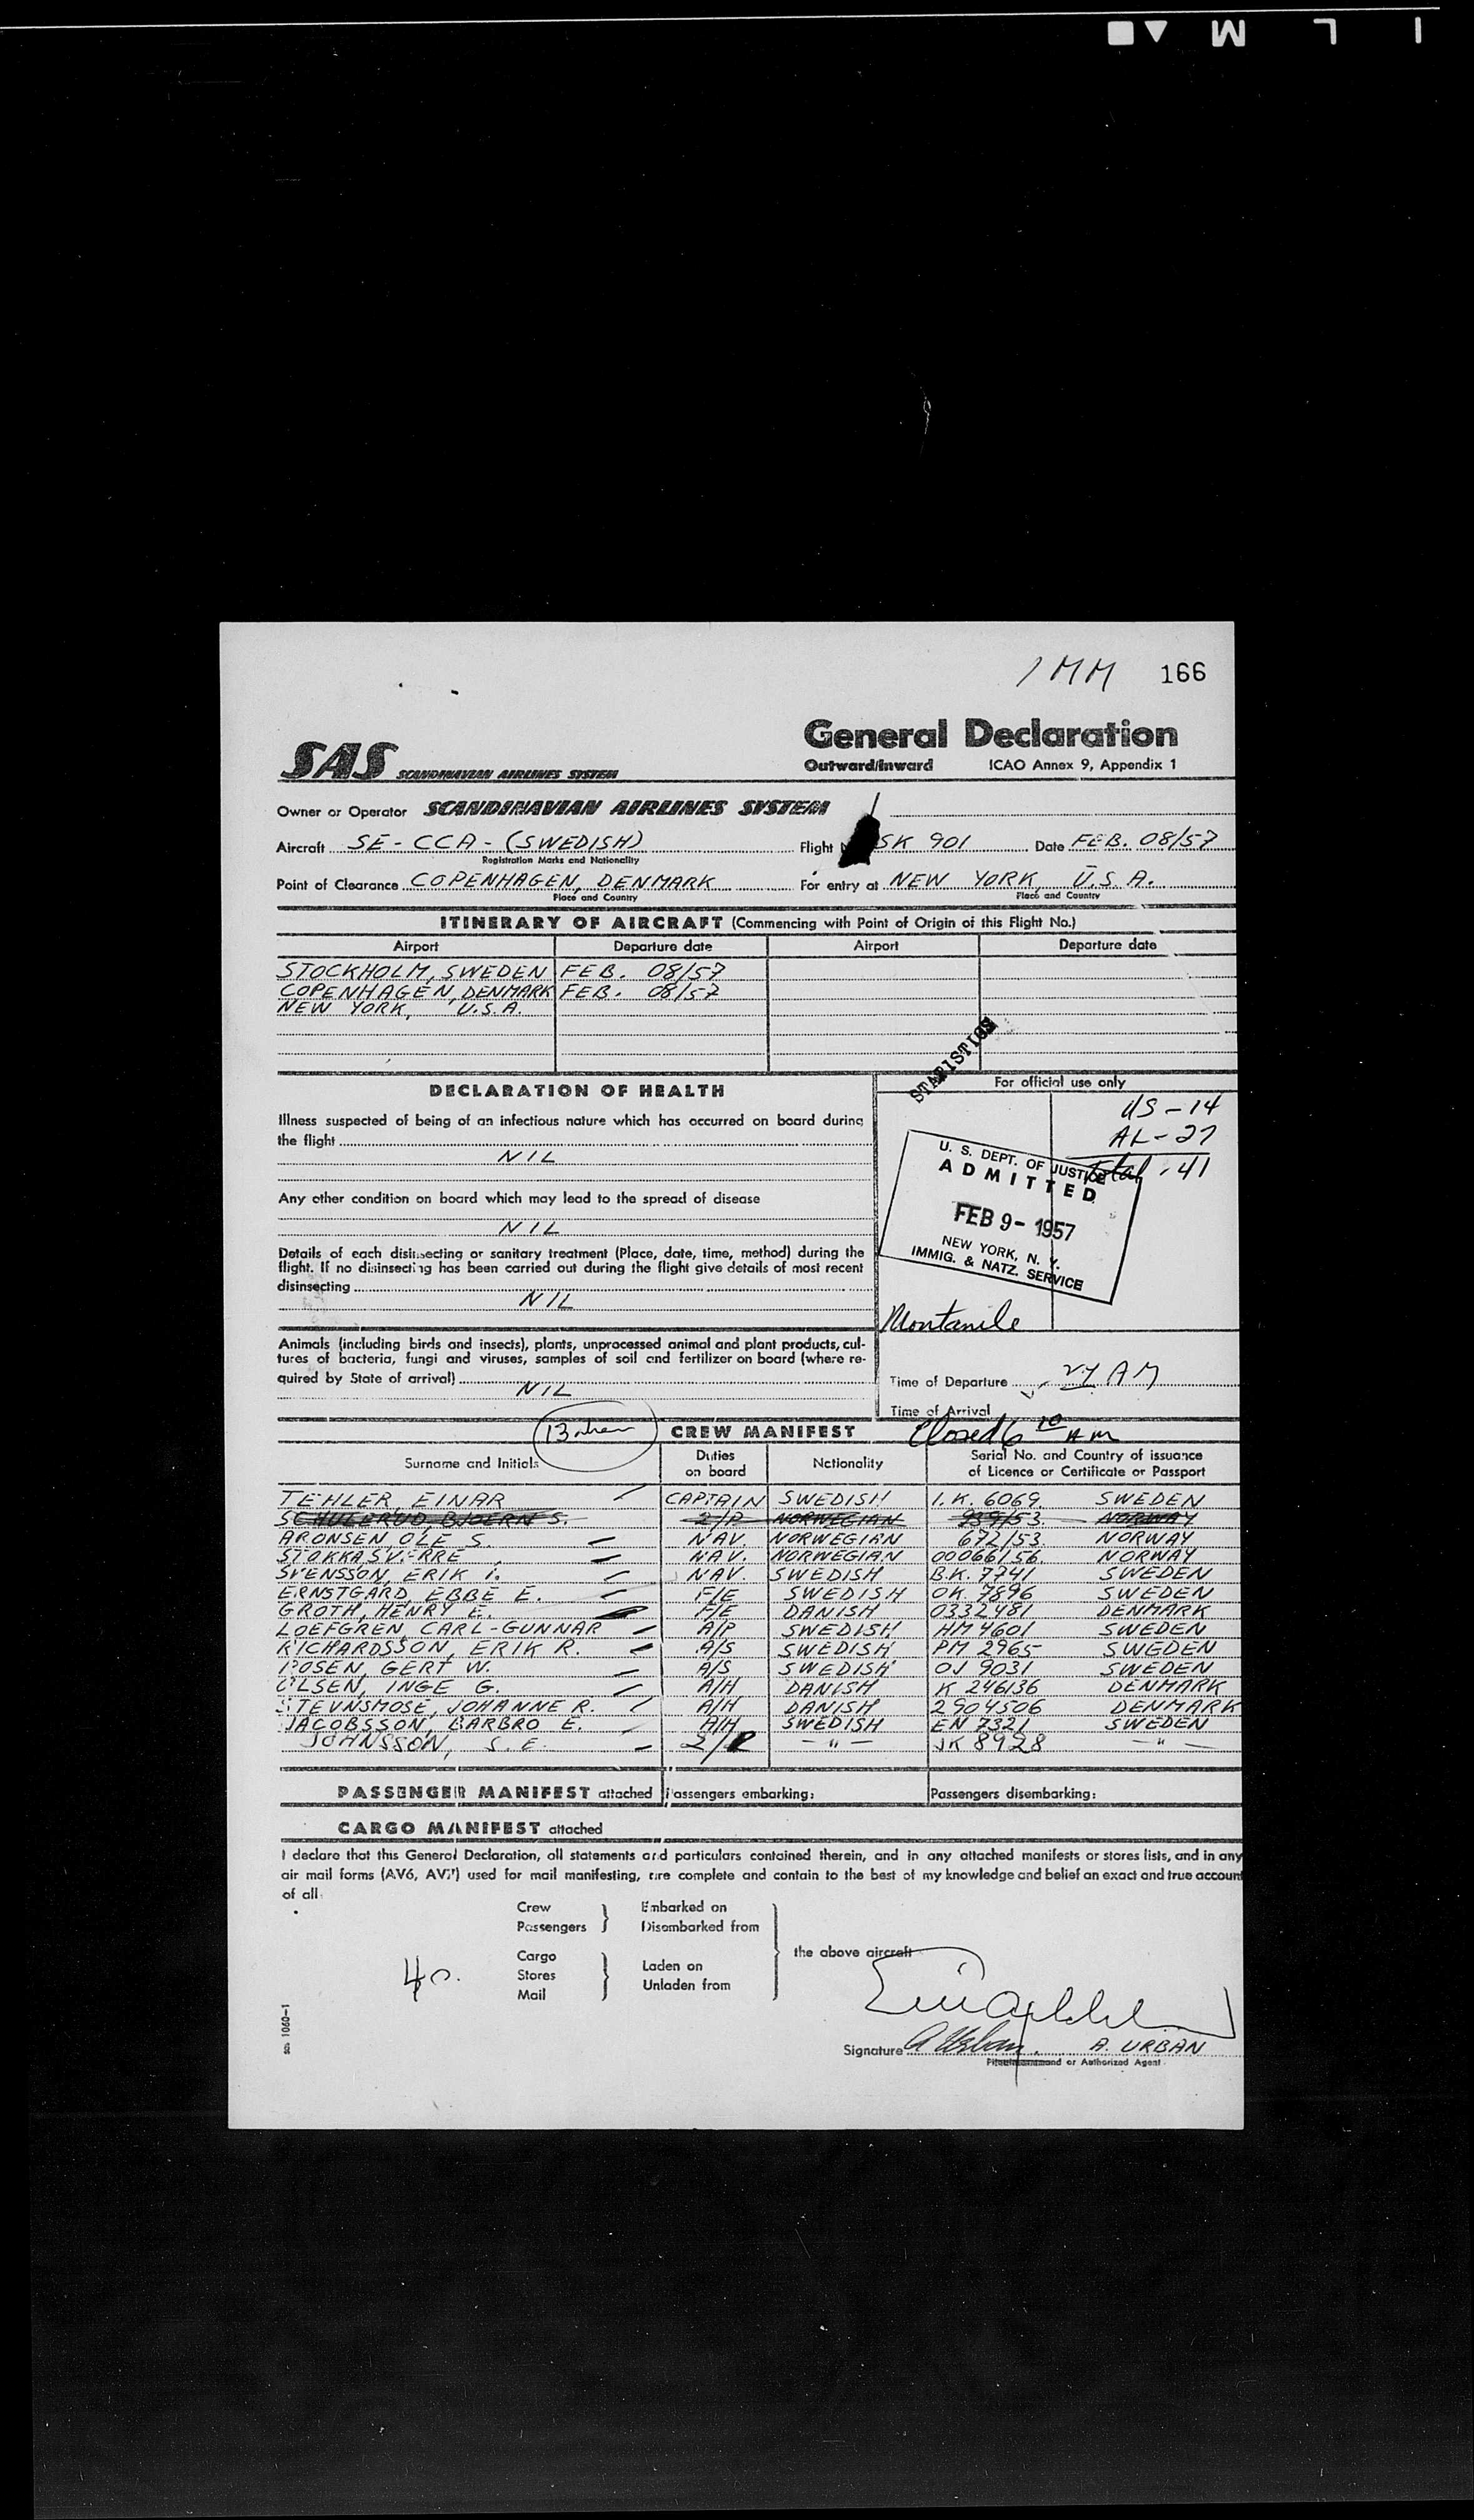 I L M
1 MM 166
SAS SCANDINAVIAN AIRLINES SYSTEM
General Declaration
Outward/Inward ICAO Annex 9, Appendix 1
Owner or Operator SCANDINAVIAN AIRLINES SYSTEM
Aircraft SE-CCA-(SWEDISH) Flight SK 901 Date FEB. 08/57
Registration Marks and Nationality
Point of Clearance COPENHAGEN, DENMARK For entry at NEW YORK, U.S.A.
Place and Country Place and Country
ITINERARY OF AIRCRAFT (Commencing with Point of Origin of this Flight No.)
Airport Departure date Airport Departure date
STOCKHOLM, SWEDEN FEB. 08/57
COPENHAGEN, DENMARK FEB. 08/57
NEW YORK, U.S.A.
STATISTICS
DECLARATION OF HEALTH
Illness suspected of being of an infectious nature which has occurred on board during
the flight
NIL
Any other condition on board which may lead to the spread of disease
NIL
Details of each disinsecting or sanitary treatment (Place, date, time, method) during the
flight. If no disinsecting has been carried out during the flight give details of most recent
disinsecting
NIL
Animals (including birds and insects), plants, unprocessed animal and plant products, cul-
tures of bacteria, fungi and viruses, samples of soil and fertilizer on board (where re-
quired by State of arrival)
NIL
For official use only
US-14
AL-27
Total-41
U. S. DEPT. OF JUSTICE
ADMITTED
FEB 9- 1957
NEW YORK, N. Y.
IMMIG. & NATZ. SERVICE
Montanile
Time of Departure AM
Time of Arrival
Closed 6 10 AM
13 CREW MANIFEST
Surname and Initials Duties on board Nationality Serial No. and Country of issuance of Licence or Certificate or Passport
TEHLER, EINAR CAPTAIN SWEDISH I.K. 6069. SWEDEN
SCHULERUD BJOERN S. 2/P NORWEGIAN 939/53. NORWAY
ARONSEN, OLE S. NAV. NORWEGIAN 672/53. NORWAY
STOKKA, SVERRE NAV. NORWEGIAN 00066/56. NORWAY
SVENSSON, ERIK I. NAV. SWEDISH B.K. 7741 SWEDEN
ERNSTGÅRD, EBBE E. F/E SWEDISH OK 7896 SWEDEN
GROTH, HENRY E. F/E DANISH 0332481 DENMARK
LOEFGREN, CARL-GUNNAR A/P SWEDISH HM 4601 SWEDEN
RICHARDSSON, ERIK R. A/S SWEDISH PM 2965 SWEDEN
ROSEN, GERT W. A/S SWEDISH OJ 9031 SWEDEN
OLSEN, INGE G. A/H DANISH K 246136 DENMARK
STEUNSMOSE, JOHANNE R. A/H DANISH 2904506 DENMARK
JACOBSSON, BARBRO E. A/H SWEDISH EN 7321 SWEDEN
JOHNSSON, S. E. 2/P - " - JK 8928 - " -
PASSENGER MANIFEST attached Passengers embarking: Passengers disembarking:
CARGO MANIFEST attached
I declare that this General Declaration, all statements and particulars contained therein, and in any attached manifests or stores lists, and in any
air mail forms (AV6, AV7) used for mail manifesting, are complete and contain to the best of my knowledge and belief an exact and true account
of all
Crew Embarked on
Passengers Disembarked from
the above aircraft
Cargo
Stores Laden on
Mail Unladen from
40.
Signature A Urban. A. URBAN
or Authorized Agent
SAS 1060-1